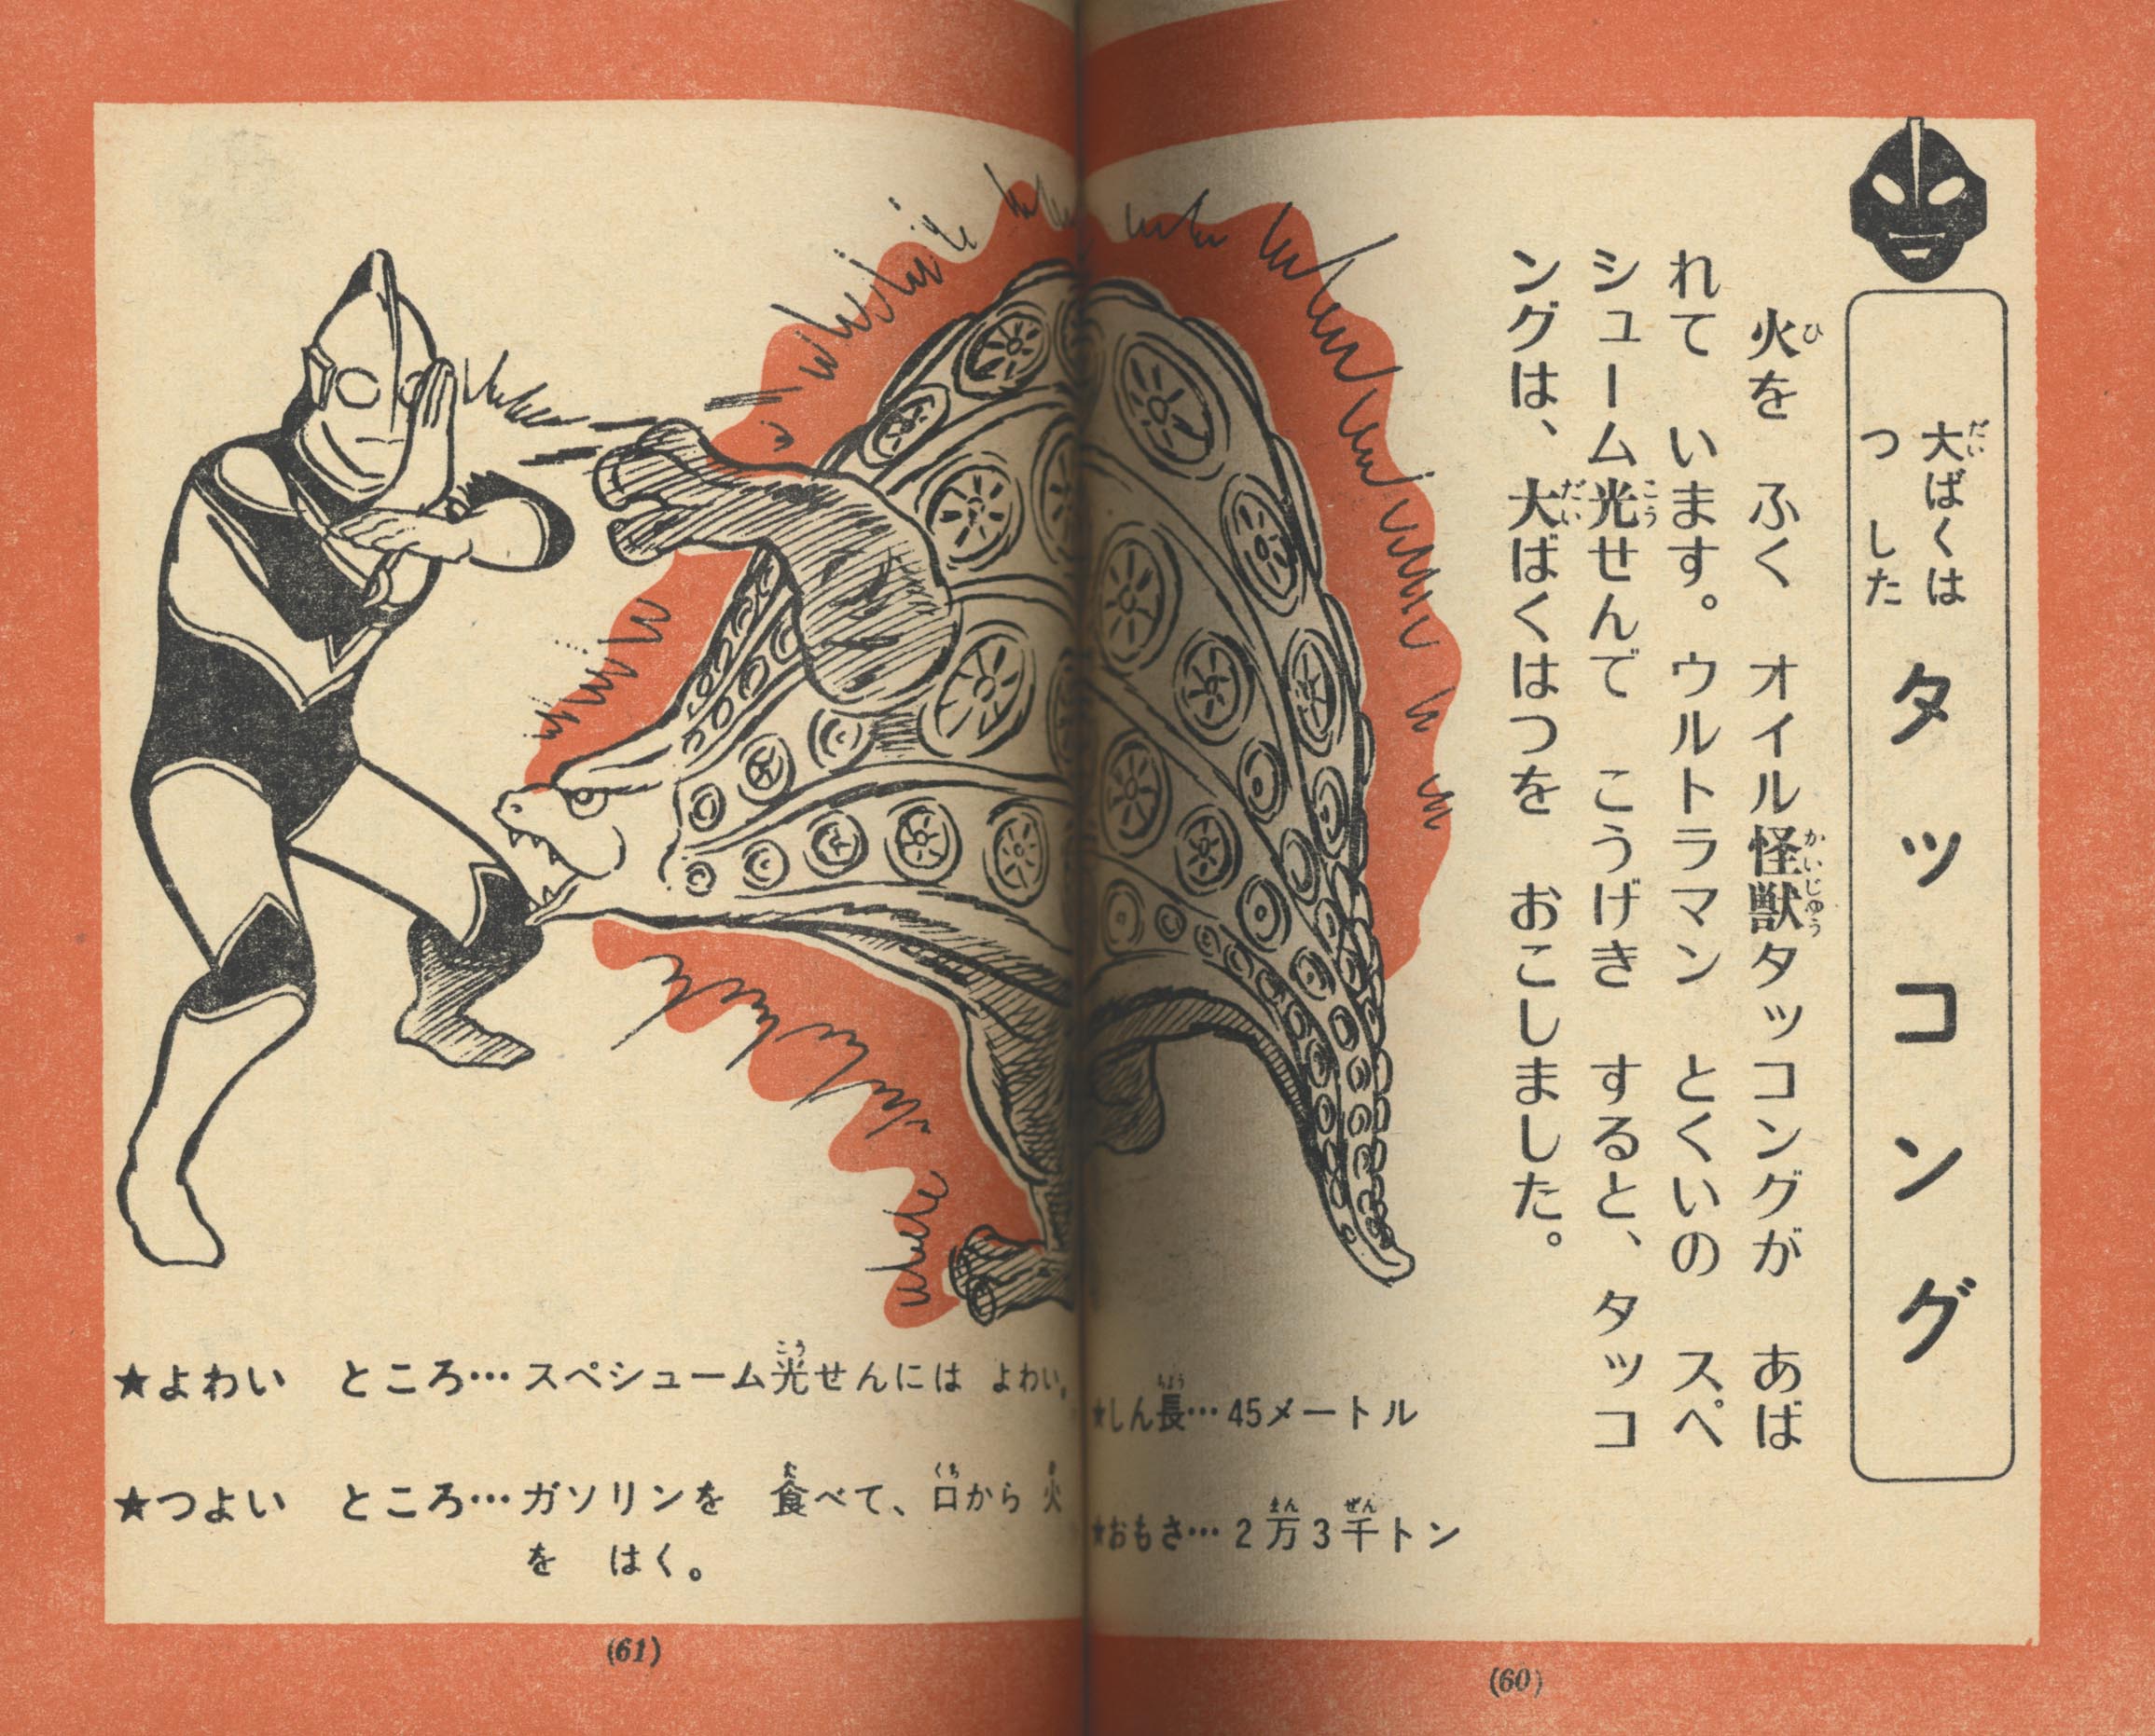 大ばくは
つ した
タッコング
火を ふく オイル怪獣タッコングが あば
れて います。ウルトラマン とくいの スペ
シューム光せんで こうげき すると、タッコ
ングは、大ばくはつを おこしました。
★しん長…45メートル
★おもさ…2万3千トン
(60)
★よわい ところ…スペシューム光せんには よわい。
★つよい ところ…ガソリンを 食べて、口から 火
を はく。
(61)